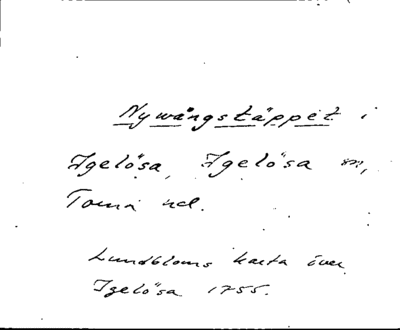 Nywångstäppet i
Igelösa, Igelösa sn,
Torna hd.
Lundbloms karta över
Igelösa 1755.